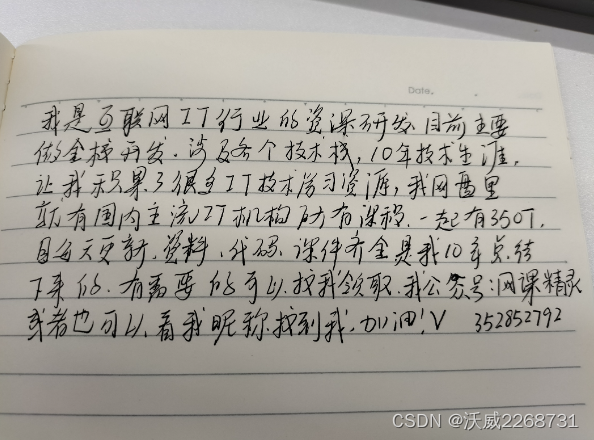 Date.
我是互联网IT行业的资深研发、目前主要
做全栈开发.涉及各个技术栈,10年技术生涯.
让我积累了很多IT技术学习资源,我网盘里
就有国内主流IT机构所有课程.一起有350T.
且每天更新.资料、代码、课件齐全是我10年总结
下来的.有需要的可以找我领取.我公众号:网课精灵
或者也可以看我昵称找到我.加油!V 352852792
CSDN @沃威2268731